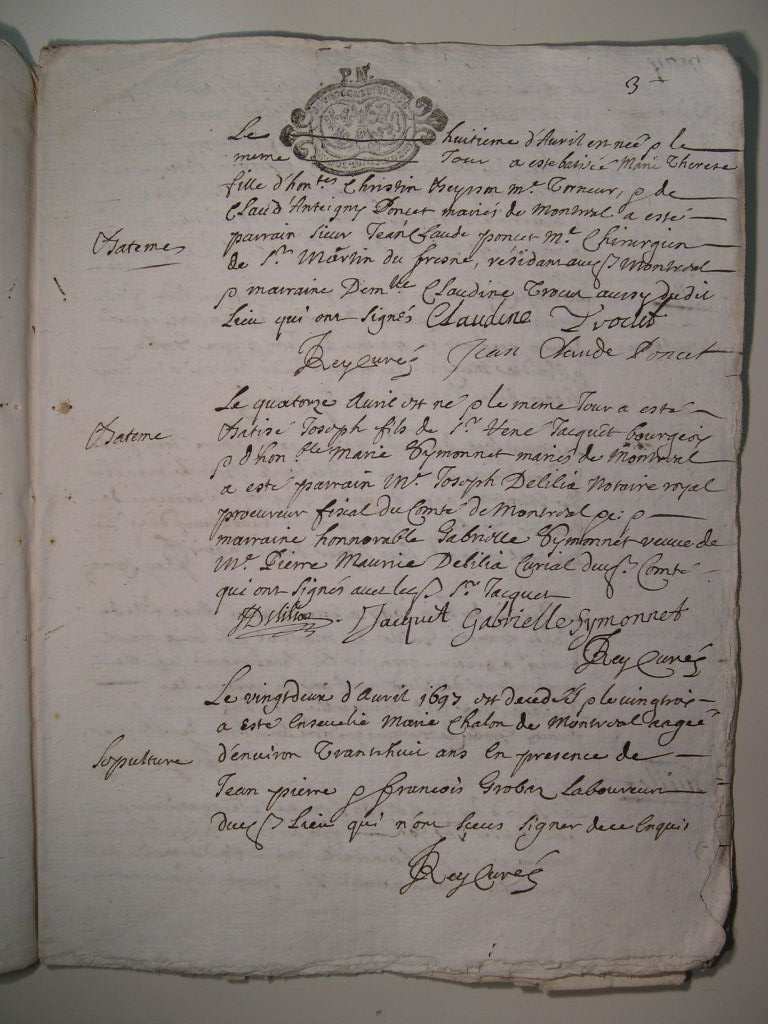 P.N.
3
Le huitieme d'Avril est neé & le
meme Jour a esté batisée Marie Therese
fille d'hon.tes Christin m.e Torneur, & de
Claud'Anteigny Poncet mariés de Montreal a esté
Bateme
parrain sieur Jean Claude poncet M.e Chirurgien
de S.t Martin du fresne, résidant aud. Montreal
& marraine Dem.lle Claudine Trocu aussy dudit
Lieu qui ont signés Claudine Trocu
Rey Curé Jean Claude Poncet
Le quatorze Avril est né & le meme Jour a esté
Bateme
Batisé Joseph fils de s.r René Jacquet bourgeois
& d'hon.ble Marie Symonnet mariés de Montreal
a esté parrain M.e Joseph Delilia Notaire royal
procureur fiscal du Comté de Montreal &c: &
marraine honnorable Gabrielle Symonnet veuve de
M.e Pierre Maurice Delilia Curial dud. Comté
qui ont signés avec led. S.r Jacquet
JDelilia Jacquet Gabrielle Symonnet
Rey Curé
Le vingtdeux d'Avril 1697 est decedeé & le vingtrois
a esté Ensevelie Marie Chalon de Montreal aageé
Sepulture
d'environ Trantehuit ans En presence de
Jean pierre & francois Grobas Laboureurs
dud. Lieu qui n'ont sceus signer de ce Enquis
Rey Curé